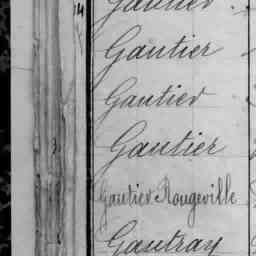 Gautier
Gautier
Gautier
Gautier
Gautier Rougeville
Gautray